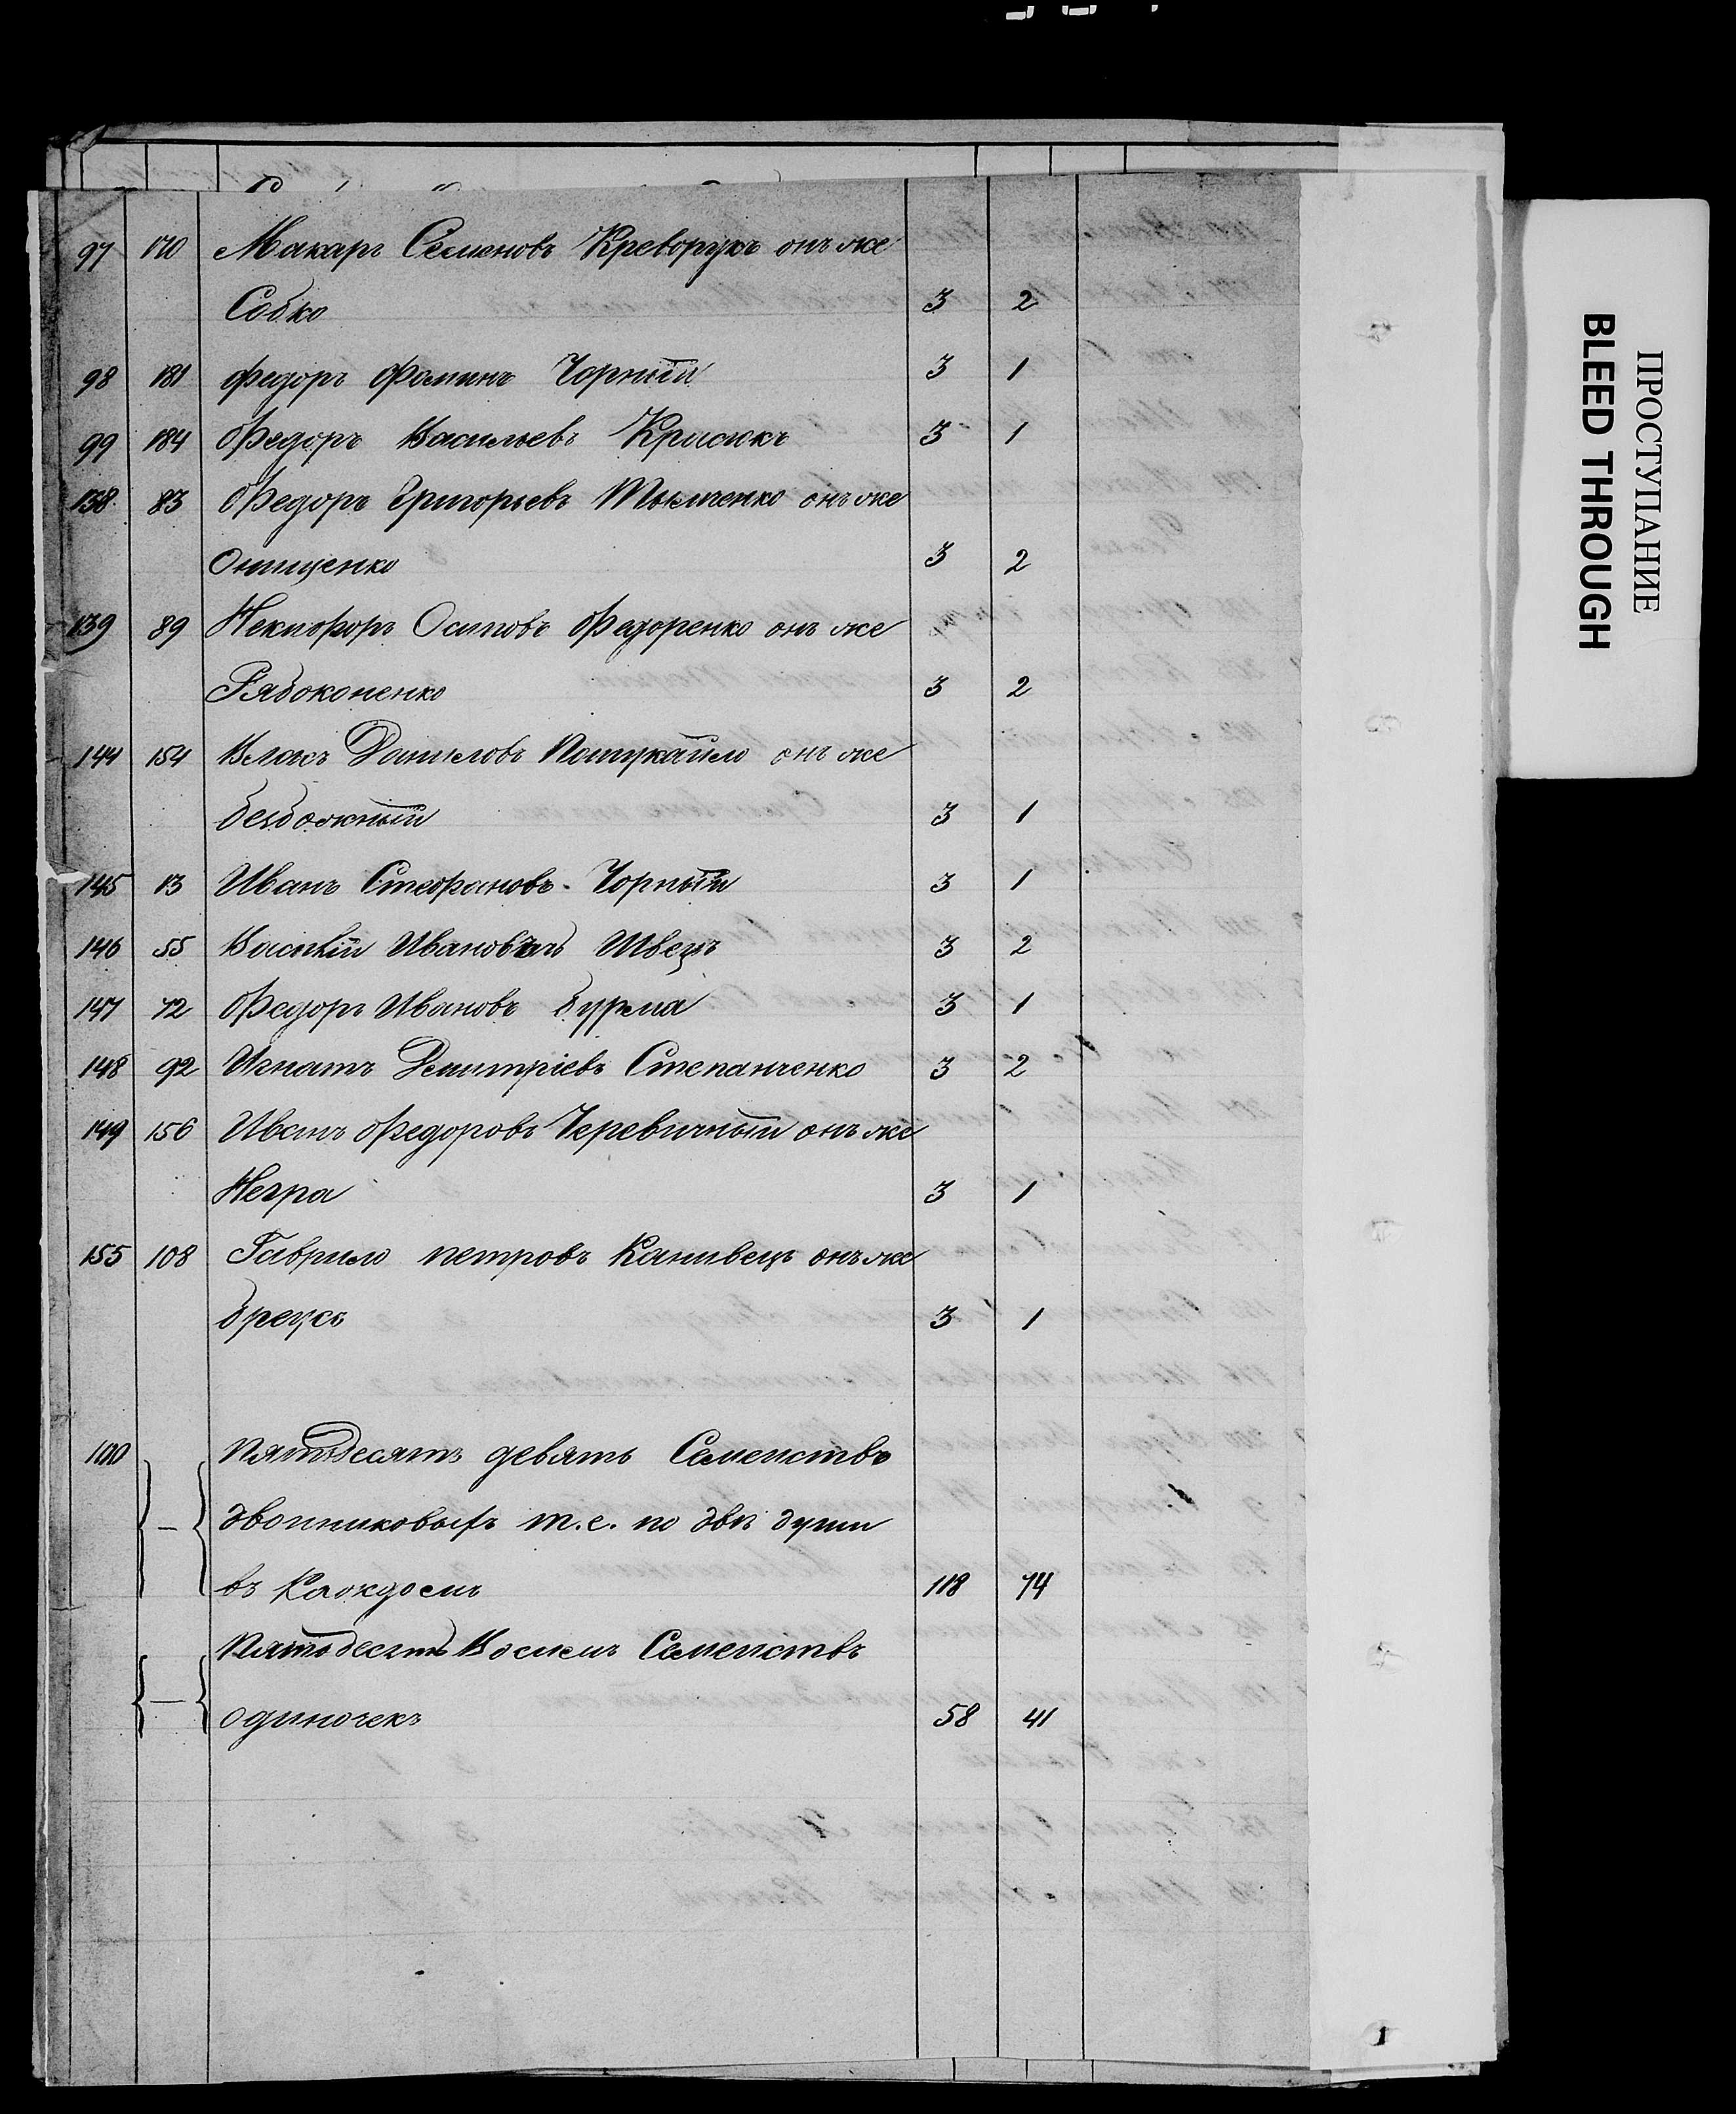 97 170 Макаръ Семеновъ Креворукъ онъ же
Собко 3 2
98 181 Федоръ Фоминъ Чорный 3 1
99 184 Федоръ Васильевъ Крисюкъ 3 1
138 83 Федоръ Григорьевъ Тымченко онъ же
Онищенко 3 2
139 89 Некифоръ Осиповъ Федоренко онъ же
Рябоконенко 3 2
144 154 Власъ Даниловъ онъ же
безбожный 3 1
145 13 Иванъ Стефановъ Чорный 3 1
146 55 Василій Ивановъ Швецъ 3 2
147 72 Федоръ Ивановъ бурма 3 1
148 92 Игнатъ Дмитріевъ Степанченко 3 2
149 156 Иванъ Федоровъ Черевичный онъ же
Негра 3 1
155 108 Гаврило петровъ Канивецъ онъ же
3 1
100 пятьдесятъ девять Семействъ
двойниковыхъ т.е. по двѣ души
въ Каждомъ 118 74
пятьдесятъ Восемъ Семействъ
одиночекъ 58 41
ПРОСТУПАНИЕ
BLEED THROUGH
1